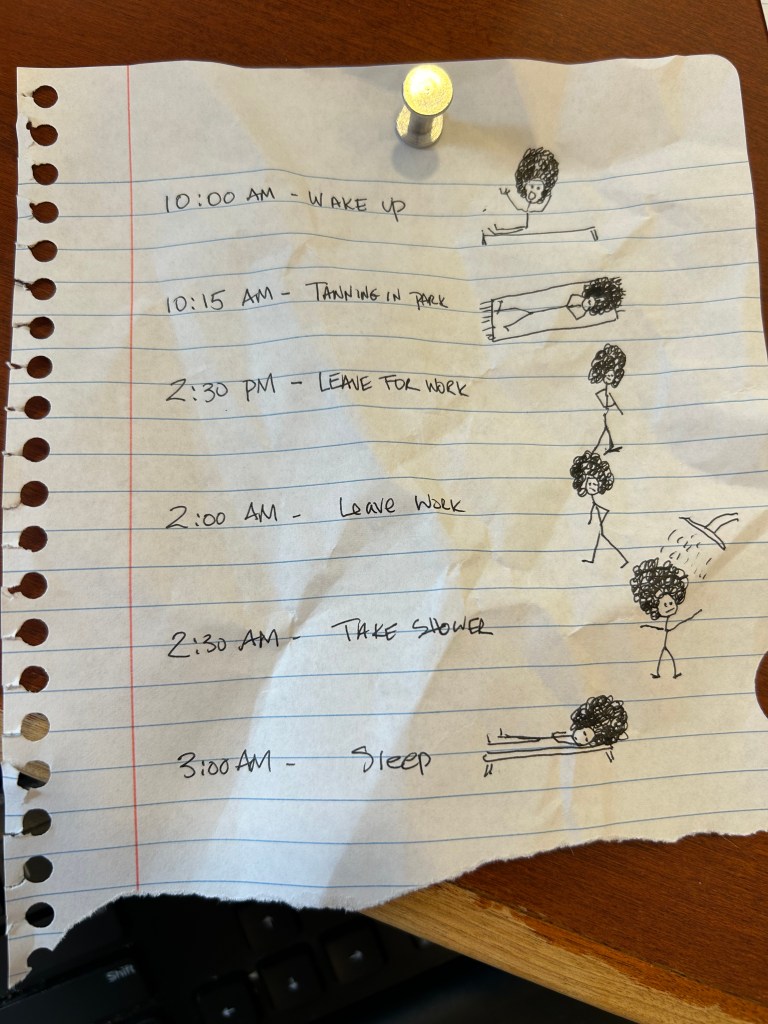 10:00 AM - WAKE UP
10:15 AM - TANNING IN PARK
2:30 PM - LEAVE FOR WORK
2:00 AM - Leave WORK
2:30 AM - TAKE SHOWER
3:00 AM - Sleep
Shift